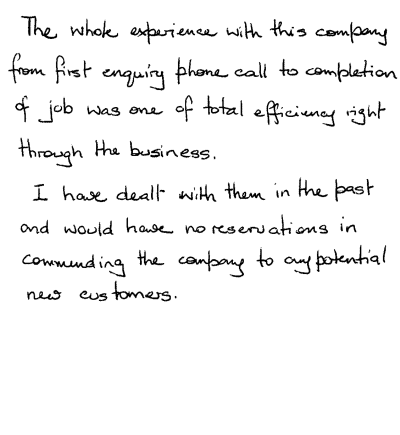 The whole experience with this company
from first enquiry phone call to completion
of job was one of total efficiency right
through the business.
I have dealt with them in the past
and would have no reservations in
commending the company to any potential
new customers.